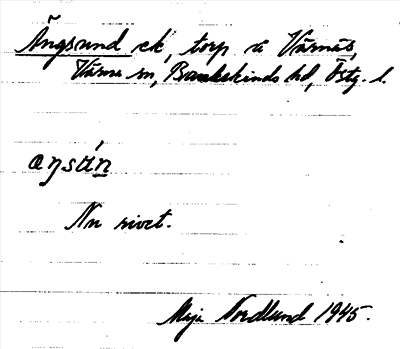 Ängsund ek, torp å Värnäs,
Värna sn, Bankekinds hd, Östg. l.
aŋsún
Nu rivet.
Maja Nordlund 1945.